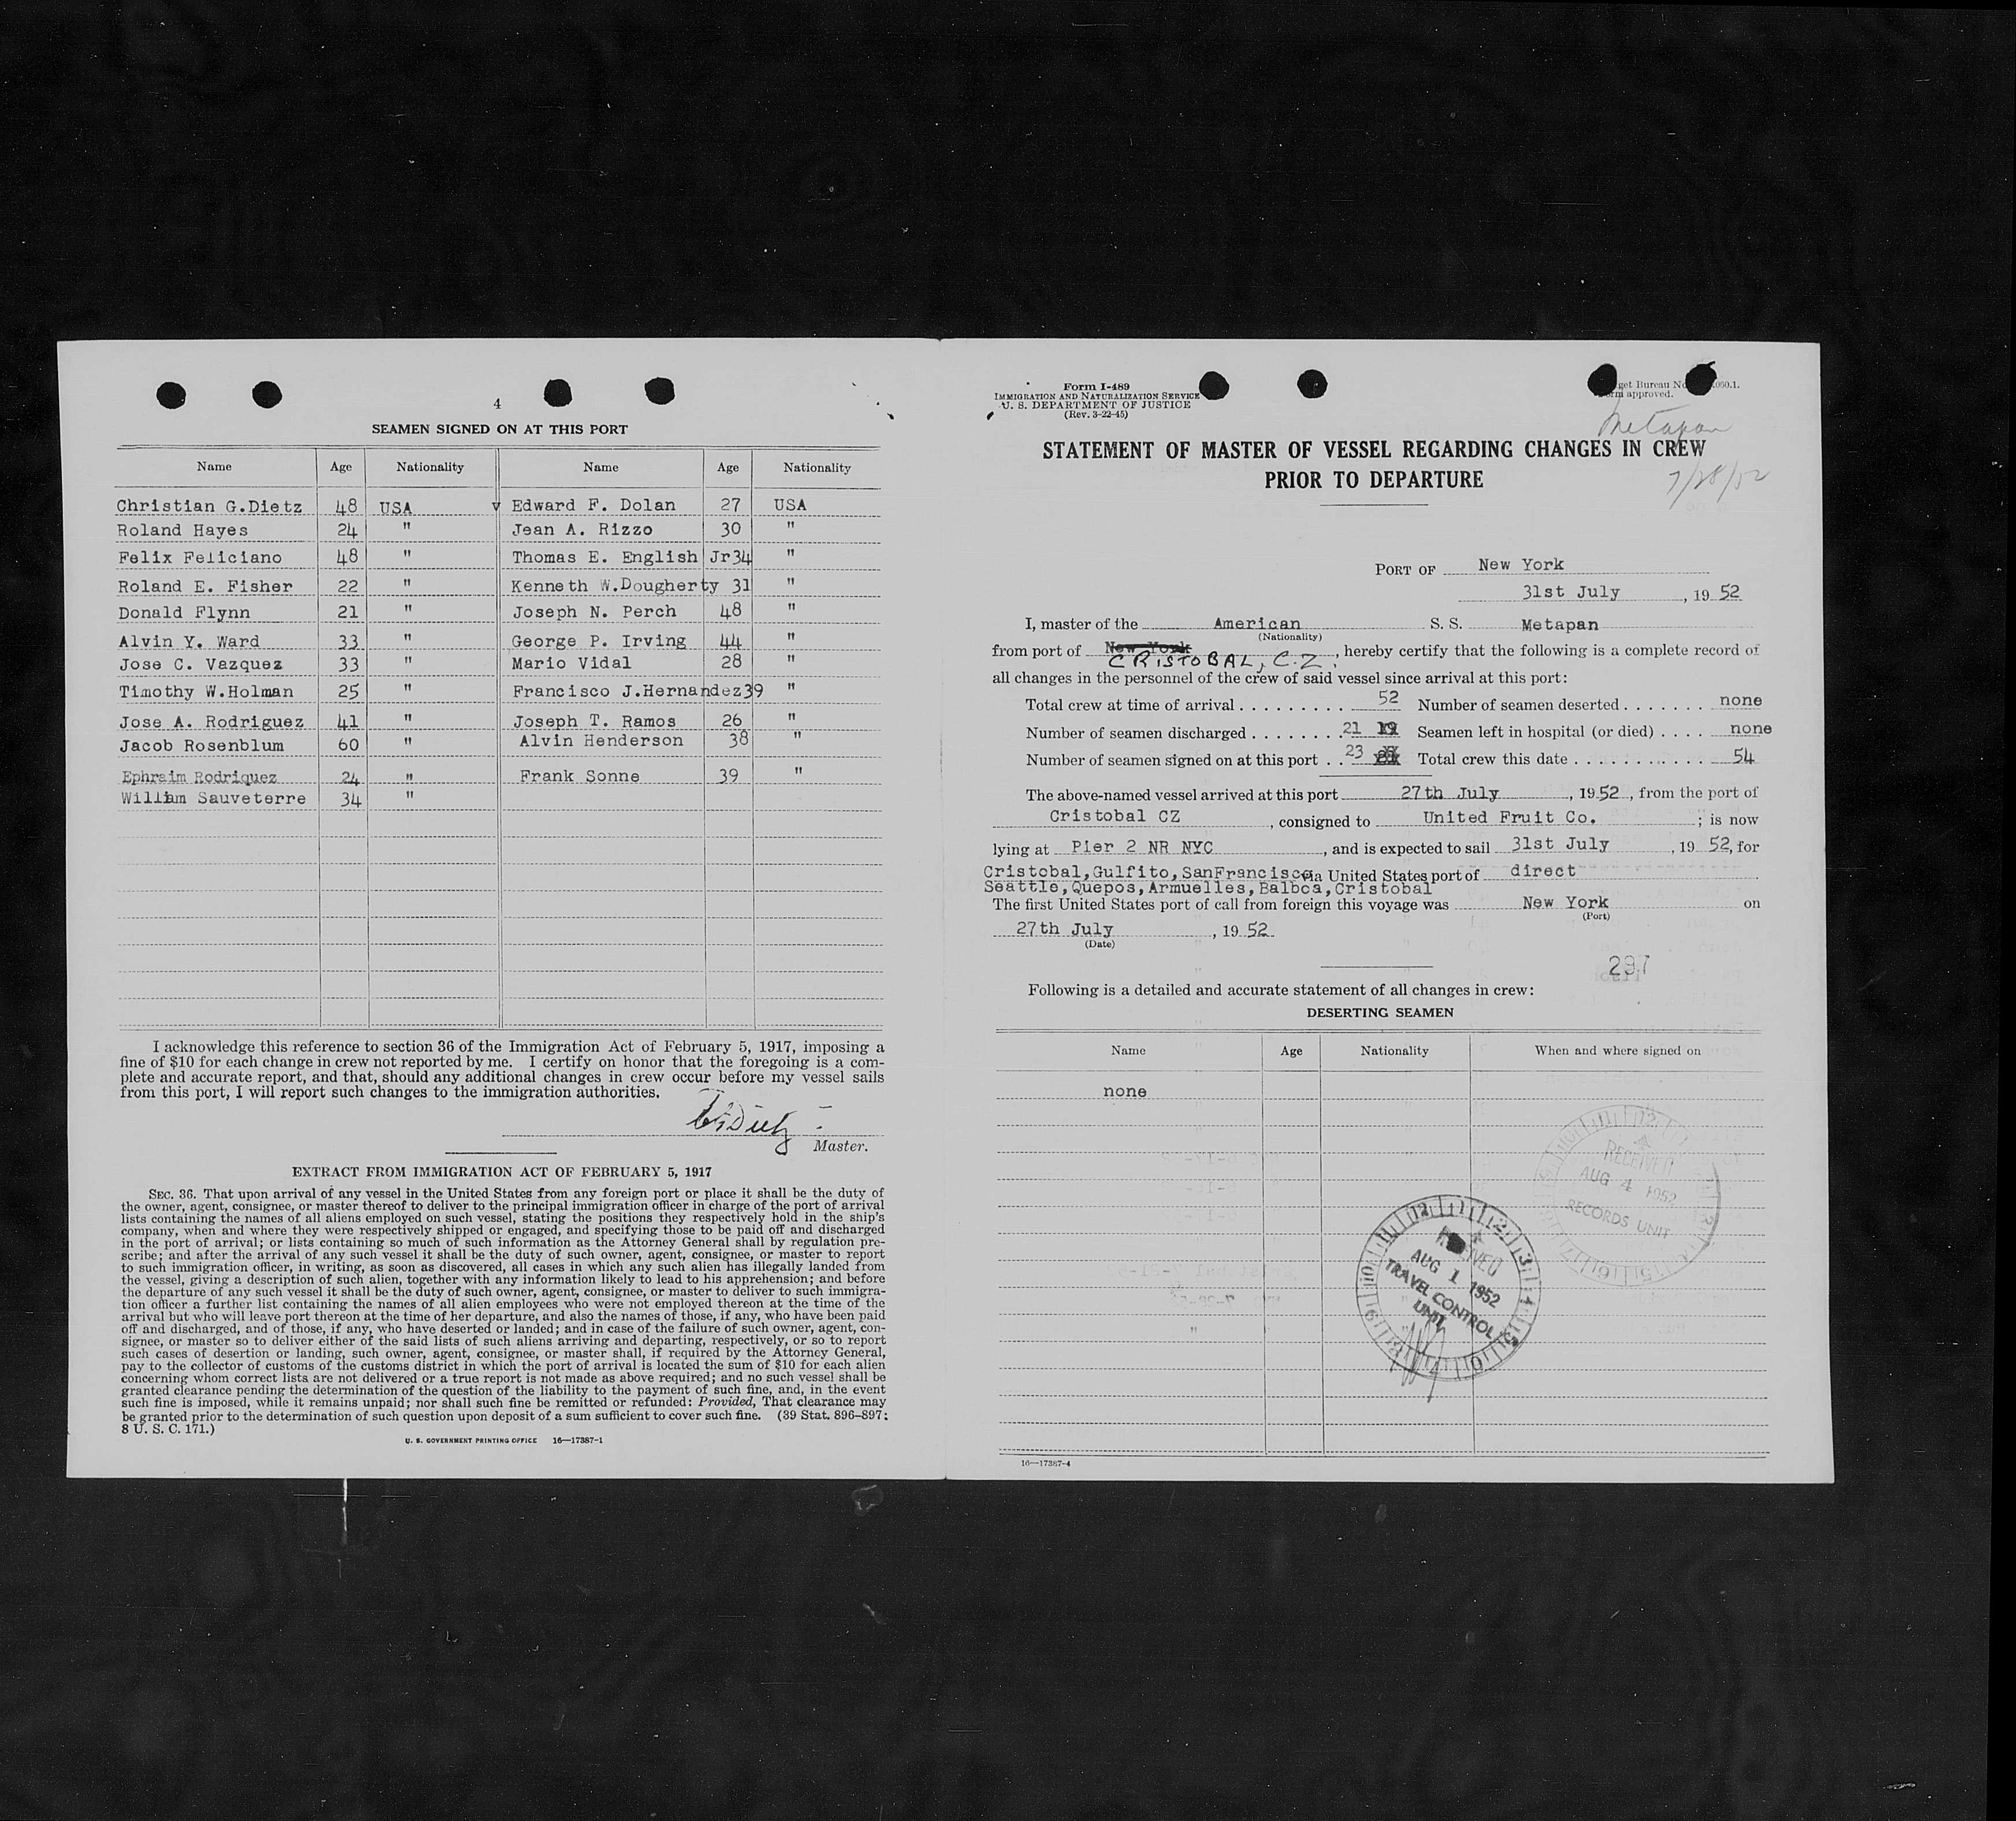 4
SEAMEN SIGNED ON AT THIS PORT
Name Age Nationality Name Age Nationality
Christian G.Dietz 48 USA v Edward F. Dolan 27 USA
Roland Hayes 24 " Jean A. Rizzo 30 "
Felix Feliciano 48 " Thomas E. English Jr 34 "
Roland E. Fisher 22 " Kenneth W.Dougherty 31 "
Donald Flynn 21 " Joseph N. Perch 48 "
Alvin Y. Ward 33 " George P. Irving 44 "
Jose C. Vazquez 33 " Mario Vidal 28 "
Timothy W.Holman 25 " Francisco J.Hernandez 39 "
Jose A. Rodriguez 41 " Joseph T. Ramos 26 "
Jacob Rosenblum 60 " Alvin Henderson 38 "
Ephraim Rodriquez 24 " Frank Sonne 39 "
William Sauveterre 34 "
I acknowledge this reference to section 36 of the Immigration Act of February 5, 1917, imposing a
fine of $10 for each change in crew not reported by me. I certify on honor that the foregoing is a com-
plete and accurate report, and that, should any additional changes in crew occur before my vessel sails
from this port, I will report such changes to the immigration authorities.
Master.
EXTRACT FROM IMMIGRATION ACT OF FEBRUARY 5, 1917
SEC. 36. That upon arrival of any vessel in the United States from any foreign port or place it shall be the duty of
the owner, agent, consignee, or master thereof to deliver to the principal immigration officer in charge of the port of arrival
lists containing the names of all aliens employed on such vessel, stating the positions they respectively hold in the ship's
company, when and where they were respectively shipped or engaged, and specifying those to be paid off and discharged
in the port of arrival; or lists containing so much of such information as the Attorney General shall by regulation pre-
scribe; and after the arrival of any such vessel it shall be the duty of such owner, agent, consignee, or master to report
to such immigration officer, in writing, as soon as discovered, all cases in which any such alien has illegally landed from
the vessel, giving a description of such alien, together with any information likely to lead to his apprehension; and before
the departure of any such vessel it shall be the duty of such owner, agent, consignee, or master to deliver to such immigra-
tion officer a further list containing the names of all alien employees who were not employed thereon at the time of the
arrival but who will leave port thereon at the time of her departure, and also the names of those, if any, who have been paid
off and discharged, and of those, if any, who have deserted or landed; and in case of the failure of such owner, agent, con-
signee, or master so to deliver either of the said lists of such aliens arriving and departing, respectively, or so to report
such cases of desertion or landing, such owner, agent, consignee, or master shall, if required by the Attorney General,
pay to the collector of customs of the customs district in which the port of arrival is located the sum of $10 for each alien
concerning whom correct lists are not delivered or a true report is not made as above required; and no such vessel shall be
granted clearance pending the determination of the question of the liability to the payment of such fine, and, in the event
such fine is imposed, while it remains unpaid; nor shall such fine be remitted or refunded: Provided, That clearance may
be granted prior to the determination of such question upon deposit of a sum sufficient to cover such fine. (39 Stat. 896–897;
8 U. S. C. 171.)
U. S. GOVERNMENT PRINTING OFFICE 16—17387-1
Form I-489
IMMIGRATION AND NATURALIZATION SERVICE
U. S. DEPARTMENT OF JUSTICE
(Rev. 3-22-45)
get Bureau No. 060.1.
approved.
Metapan
STATEMENT OF MASTER OF VESSEL REGARDING CHANGES IN CREW
PRIOR TO DEPARTURE
7/28/52
PORT OF New York
31st July , 19 52
I, master of the American S. S. Metapan
(Nationality)
from port of New York CRISTOBAL, C.Z. , hereby certify that the following is a complete record of
all changes in the personnel of the crew of said vessel since arrival at this port:
Total crew at time of arrival . . . . . . . . . . 52 Number of seamen deserted . . . . . . . none
Number of seamen discharged . . . . . . . . 21 19 Seamen left in hospital (or died) . . . . none
Number of seamen signed on at this port . . 23 Total crew this date . . . . . . . . . . . . 54
The above-named vessel arrived at this port 27th July , 19 52 , from the port of
Cristobal CZ , consigned to United Fruit Co. ; is now
lying at Pier 2 NR NYC , and is expected to sail 31st July , 19 52, for
Cristobal,Gulfito,SanFrancisco via United States port of direct
Seattle,Quepos,Armuelles,Balboa,Cristobal
The first United States port of call from foreign this voyage was New York on
(Port)
27th July , 19 52
(Date)
297
Following is a detailed and accurate statement of all changes in crew:
DESERTING SEAMEN
Name Age Nationality When and where signed on
none
RECEIVED
AUG 4 1952
RECORDS UNIT
RECEIVED
AUG 1 1952
TRAVEL CONTROL
UNIT
16—17387-4